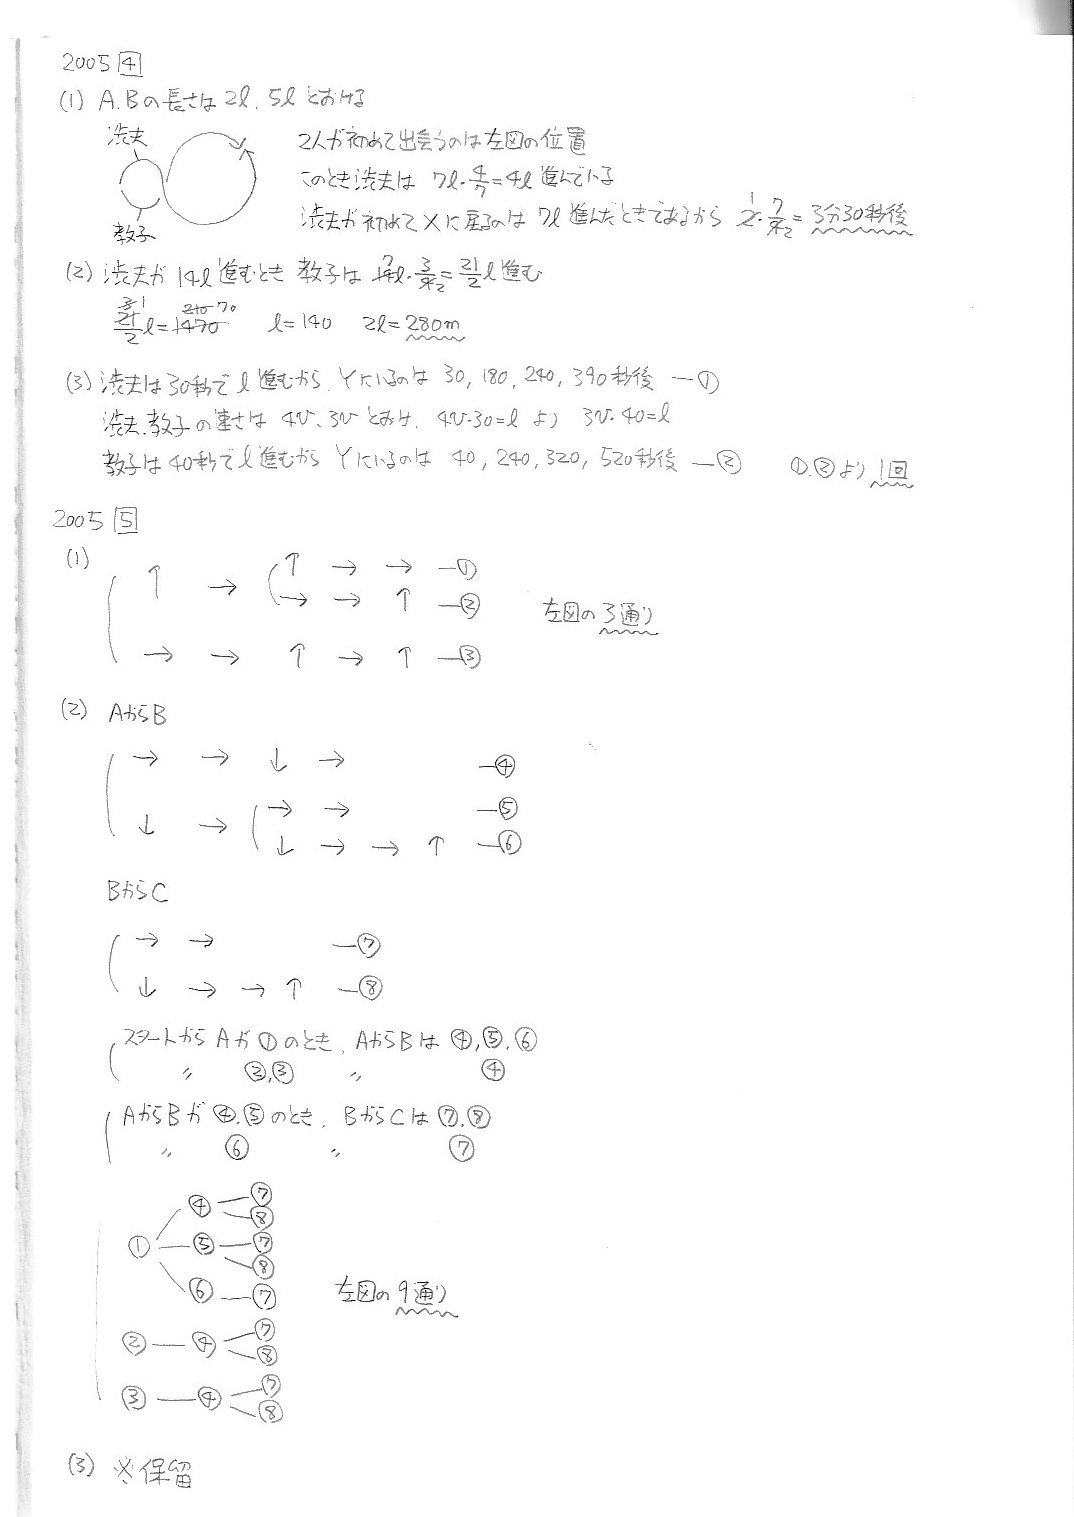 2005 4
(1) A.Bの長さは 2l. 5l とおける
渋夫
教子
2人が初めて出会うのは左図の位置
このとき渋夫は 7l・4/7=4l 進んでいる
渋夫が初めてXに戻るのは 7l 進んだときであるから 2・7/4 = 3分30秒後
1 2
(2) 渋夫が 14l 進むとき 教子は 14l・3/4 = 21/2 l 進む
7 2
21/2 l = 1470 l=140 2l=280m
3 1 210 70
(3) 渋夫は30秒で l 進むから Yにいるのは 30, 180, 240, 390秒後 ―①
渋夫.教子の速さは 4v、3v とおけ. 4v・30=l より 3v・40=l
教子は40秒で l 進むから Yにいるのは 40, 240, 320, 520秒後 ―② ①.②より 1回
2005 5
(1)
↑ → ↑ → → ―①
→ → ↑ ―②
→ → ↑ → ↑ ―③
左図の 3通り
(2) AからB
→ → ↓ → ―④
↓ → → → ―⑤
↓ → → ↑ ―⑥
BからC
→ → ―⑦
↓ → → ↑ ―⑧
スタートからAが①のとき、AからBは ④,⑤.⑥
〃 ②,③ 〃 ④
AからBが ④.⑤のとき、BからCは ⑦.⑧
〃 ⑥ 〃 ⑦
① ④ ⑦
⑧
⑤ ⑦
⑧
⑥ ⑦
② ④ ⑦
⑧
③ ④ ⑦
⑧
左図の 9通り
(3) ※保留